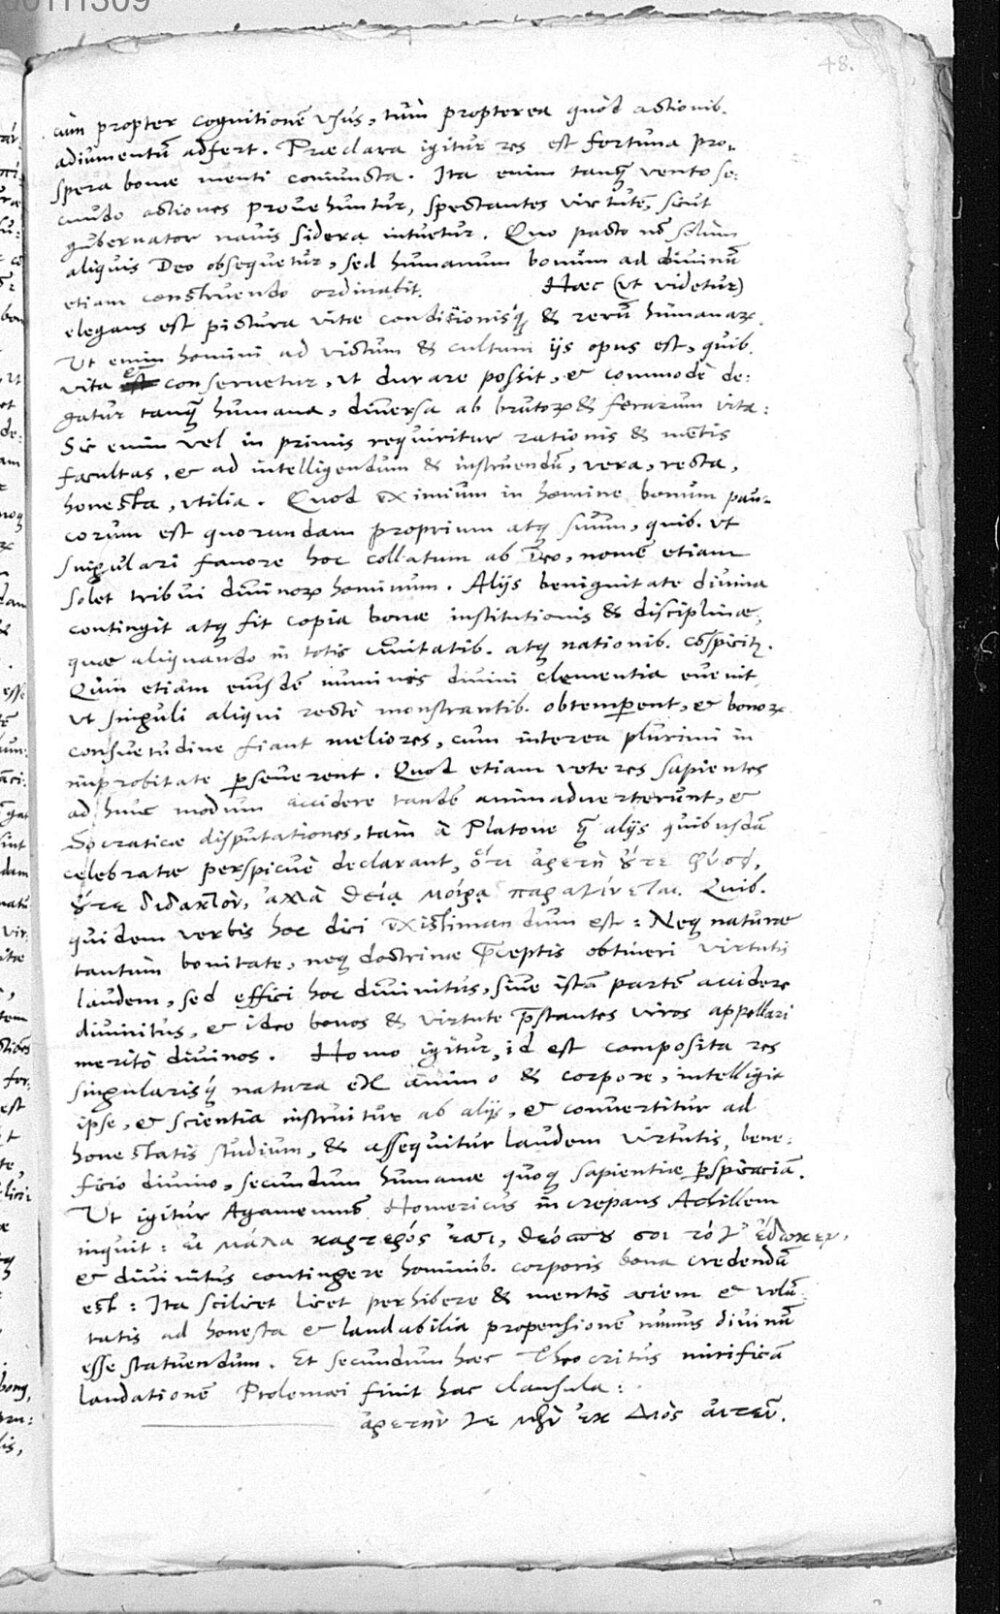 48.
cum propter cognitionē usus, tum propterea quòd actionib.
adiumentū adfert. Præclara igitur res est fortuna pro-
spera bonæ menti coniuncta. Ita enim tanq̃ vento se:
cundo actiones provehuntur, spectantes virtutē, sicut
gubernator navis sidera intuetur. Quo pacto nō solum
aliquis Deo obsequetur, sed humanum bonum ad divinū
etiam construendo ordinabit. Hæc (ut videtur)
elegans est pictura vitæ conditionisq́; & rerū humanaꝝ.
Ut enim homini ad victum & cultum ijs opus est, quib.
vita et conservetur, ut durare possit, & commodè de:
gatur tanq̃ humana, diversa ab brutoꝝ & ferarum vita:
Sic enim vel in primis requiritur rationis & mētis
facultas, & ad intelligendum & instruendū, vera, recta,
honesta, utilia. Quod eximium in homine bonum pau-
corum est quorundam proprium atq; suum, quib. ut
singulari favore hoc collatum ab Deo, nomē etiam
solet tribui divinoꝝ hominum. Alijs benignitate divina
contingit atq; fit copia bonæ institutionis & disciplinæ,
quæ aliquando in totis civitatib. atq; nationib. cōspicit̃.
Quin etiam eiusdē numinis divini clementia evenit,
ut singuli aliqui rectè monstrantib. obtemperent, & bonoꝝ
consuetudine fiant meliores, cum interea plurimi in
improbitate perseverent. Quod etiam veteres sapientes
ad hunc modum accidere tandē animadverterunt, &
Socraticæ disputationes, tam à Platone q̃ alijs quibusdā
celebratæ perspicuè declarant, ὅτι ἀρετὴ ὔτε φύσει,
ὔτε διδακτὸν, ἀλλὰ θείᾳ μοίρᾳ παραγίνεται. Quib.
quidem verbis hoc dici existimandum est: Neq; naturæ
tantum bonitate, neq; doctrinæ præceptis obtineri virtutis
laudem, sed effici hoc divinitus, sive istā partē accidere
divinitus, & ideo bonos & virtute præstantes viros appellari
meritò divinos. Homo igitur, id est composita res
singularisq́; natura ex animo & corpore, intelligit
ipse, & scientia instruitur ab alijs, & convertitur ad
honestatis studium, & assequitur laudem virtutis, bene:
ficio divino, secundum humanæ quoq; sapientiæ perspiciciā.
Ut igitur Agamemnō Homericus increpans Achillem
inquit: εἰ μάλα καρτερός ἐσσι, θεός που σοι τό γ' ἔδωκεν,
& divinitus contingere hominib. corporis bona credendū
est: Ita scilicet licet perhibere & mentis aciem & volū-
tatis ad honesta & laudabilia propensionē munus divinū
esse statuendum. Et secundum hæc Theocritus mirificā
laudationē Ptolemæi finit hac clausula:
ἀρετήν γε μὲν ἐκ Διὸς αἰτεῦ.